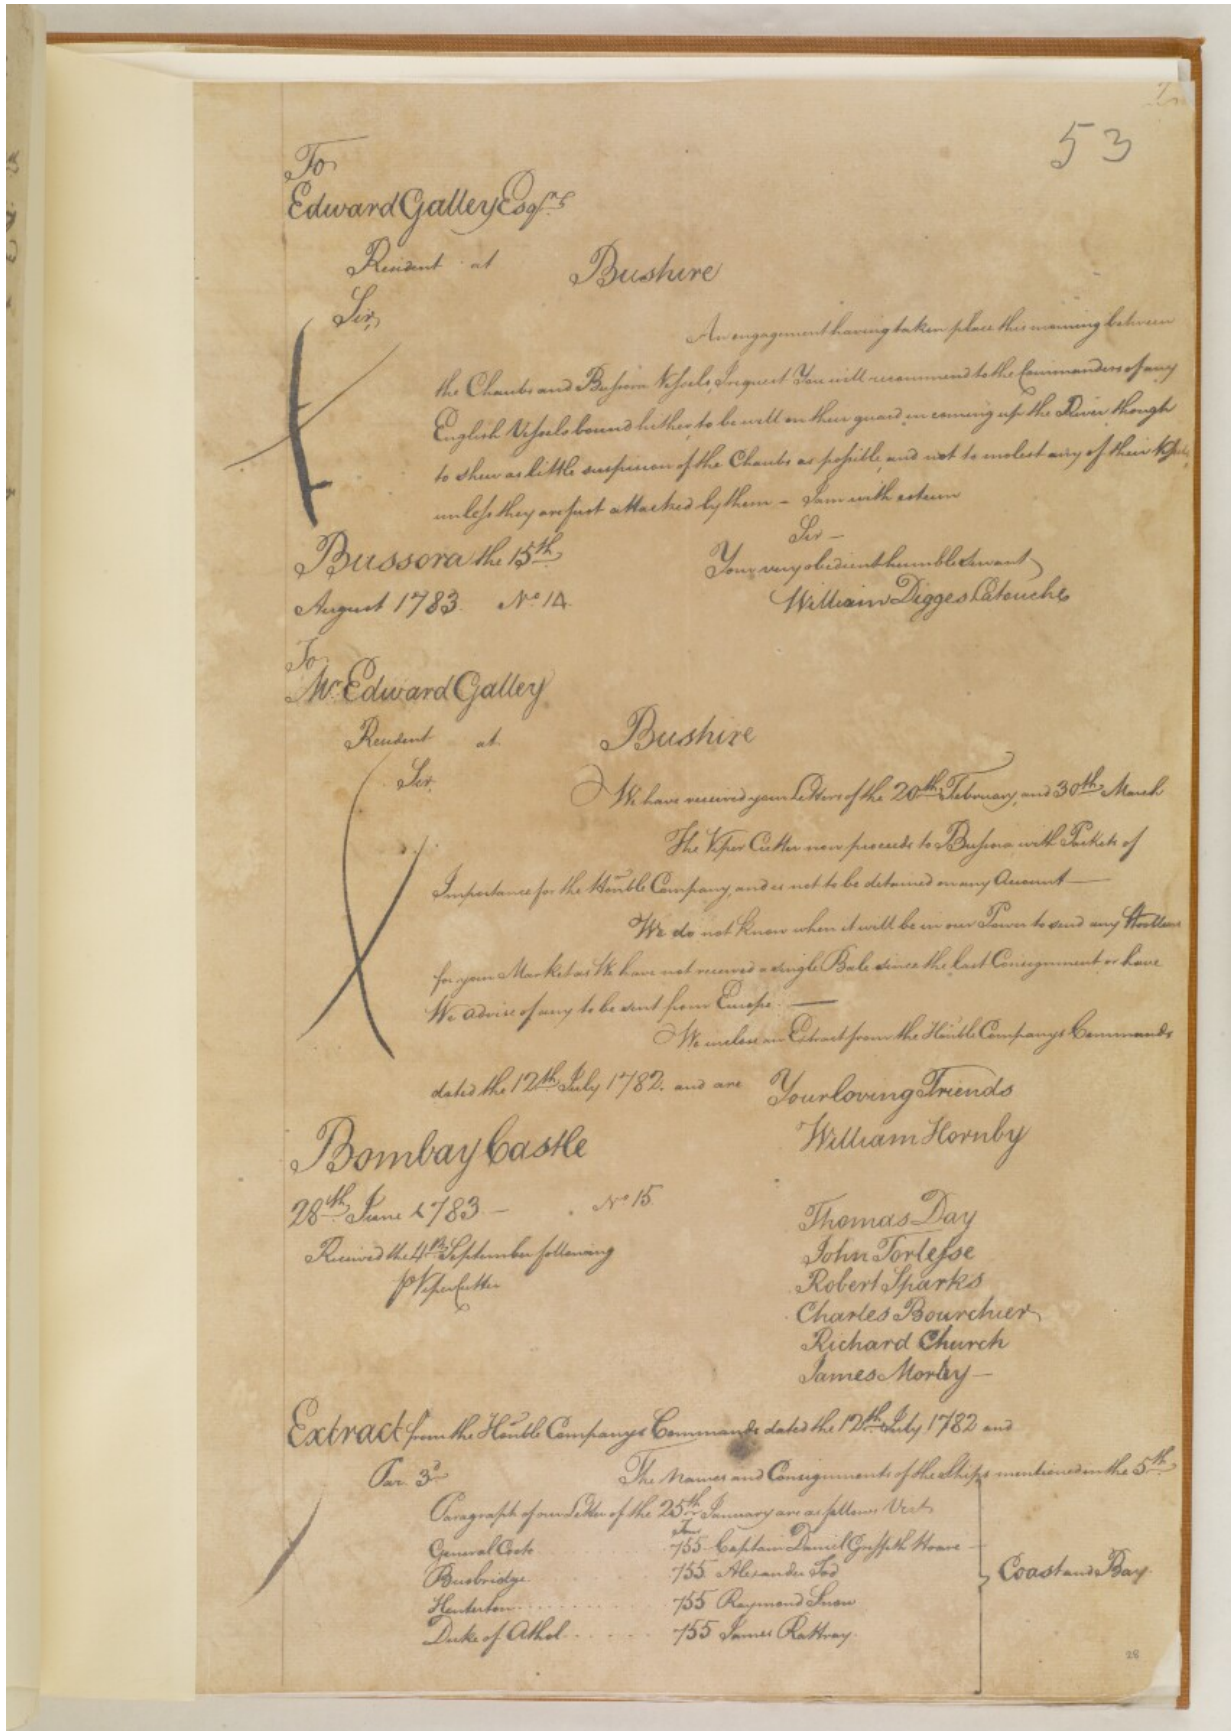 53
To
Edward Galley Esqr.
Resident at Bushire
Sir,
An engagement having taken place this morning between
the Chaubs and Bussora Vessels, I request You will recommend to the Commanders of any
English Vessels bound hither, to be well on their guard in coming up the River, though
to shew as little suspicion of the Chaubs as possible, and not to molest any of their Vessels,
unless they are first attacked by them – I am with esteem
Sir –
Bussora the 15th.
Your very obedient humble Servant
August 1783. No. 14.
William Digges Latouche
To
Mr. Edward Galley
Resident at Bushire
Sir,
We have received your Letters of the 20th February, and 30th March
The Viper Cutter now proceeds to Bussora with Packets of
Importance for the Honble Company, and is not to be detained on any Account —
We do not know when it will be in our Power to send any Woollens
for your Market as We have not received a single Bale since the last Consignment or have
We advise of any to be sent from Europe. —
We inclose an Extract from the Honble Companys Commands
dated the 12th July 1782. and are Your loving Friends
Bombay Castle
William Hornby
28th June 1783 – No. 15.
Thomas Day
Received the 4th September following
John Torlesse
p Viper Cutter
Robert Sparks
Charles Bourchier
Richard Church
James Morley –
Extract from the Honble Companys Commands dated the 12th July 1782 and
Par. 3d. The Names and Consignments of the Ships mentioned in the 5th
Paragraph of our Letter of the 25th January are as follows Vizt
Tons
General Coote 755 Captain Daniel Griffith Hoare
Busbridge 755 Alexander Tod
Coast and Bay.
755 Raymond Snow
Duke of Athol 755 James Rattray
28